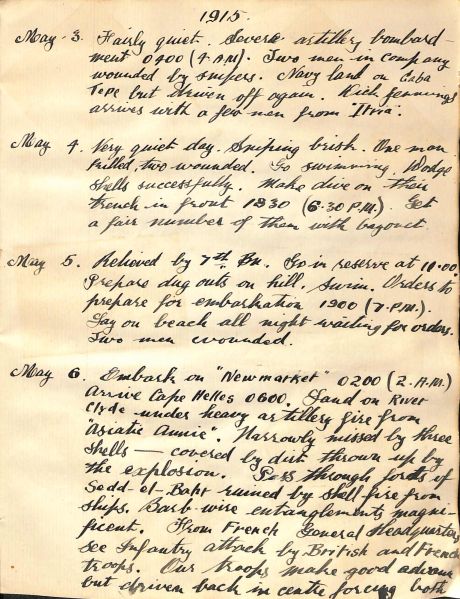 1915.
May 3. Fairly quiet. Severe artillery bombard-
ment 0400 (4 A.M.). Two men in company
wounded by snipers. Navy land on Gaba
Tepe but driven off again. Dick Jennings
arrives with a few men from "Itria".
May 4. Very quiet day. Sniping brisk. One man
killed, two wounded. Go swimming. Dodge
shells successfully. Make dive on their
trench in front 1830 (6.30 P.M.). Get
a fair number of them with bayonet.
May 5. Relieved by 7th Bn. Go in reserve at 11.00
Prepare dug outs on hill. Swim. Orders to
prepare for embarkation 1900 (7 P.M.).
Lay on beach all night waiting for orders.
Two men wounded.
May 6. Embark on "Newmarket" 0200 (2. A.M.)
Arrive Cape Helles 0600. Land on River
Clyde under heavy artillery fire from
"Asiatic Annie". Narrowly missed by three
shells — covered by dirt thrown up by
the explosion. Pass through forts of
Sedd-el-Bahr ruined by shell fire from
ships. Barb wire entanglements magni-
ficent. From French General Headquarters
see Infantry attack by British and French
troops. Our troops make good advance
but driven back in centre forcing both